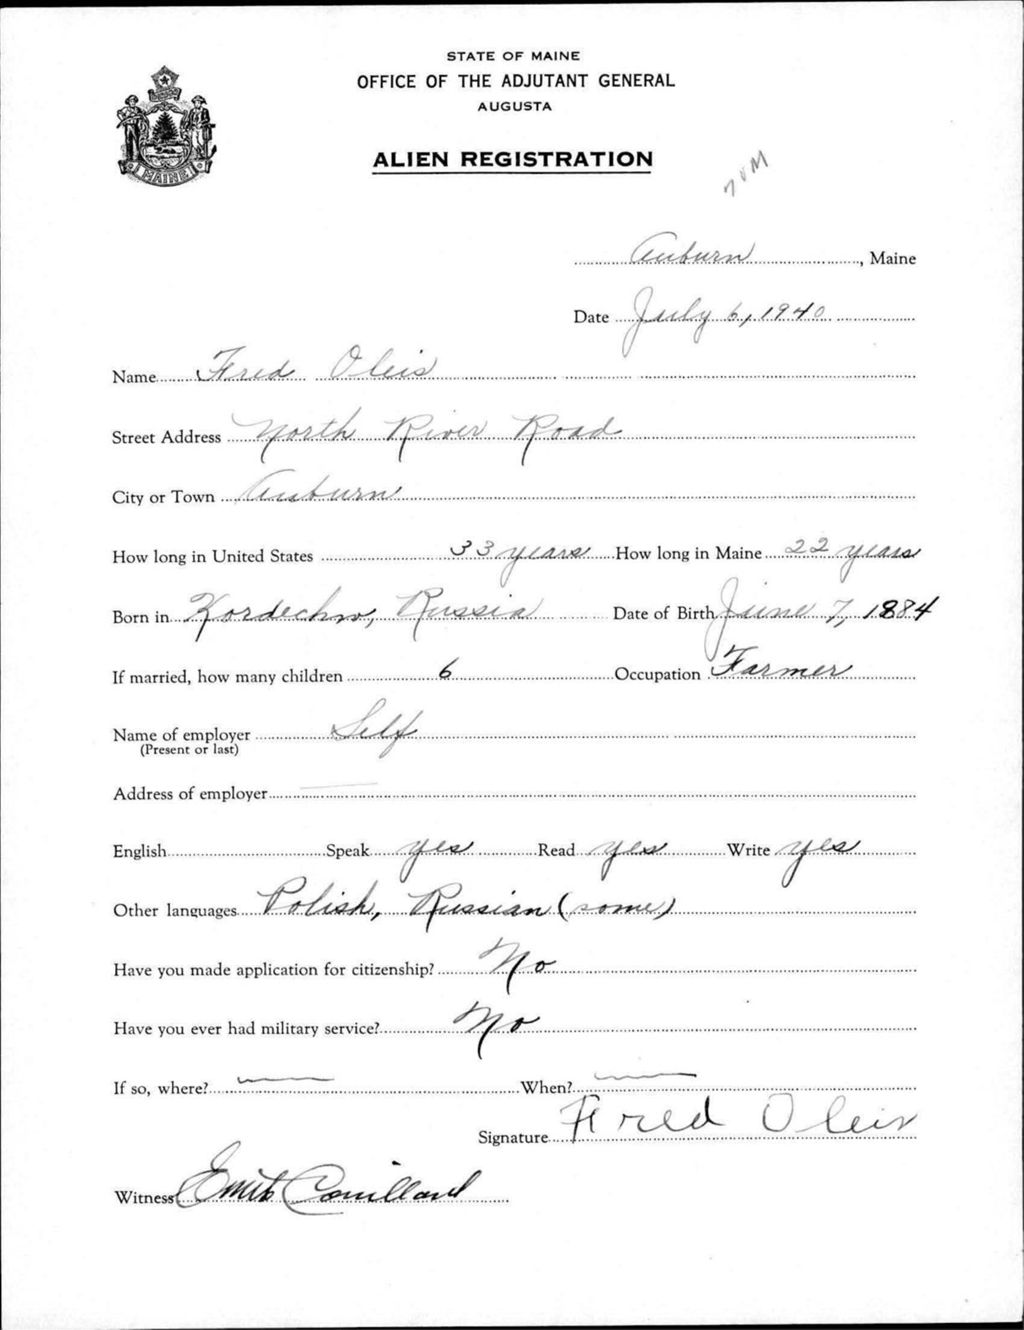 STATE OF MAINE
OFFICE OF THE ADJUTANT GENERAL
AUGUSTA
ALIEN REGISTRATION
MAINE
Auburn, Maine
Date July 6, 1940
Name Fred Oleis
Street Address North River Road
City or Town Auburn
How long in United States 33 years How long in Maine 22 years
Born in Kordechno, Russia Date of Birth June 7, 1884
If married, how many children 6 Occupation Farmer
Name of employer Self
(Present or last)
Address of employer
English Speak yes Read yes Write yes
Other languages Polish, Russian (some)
Have you made application for citizenship? No
Have you ever had military service? No
If so, where? When?
Signature Fred Oleis
Witness